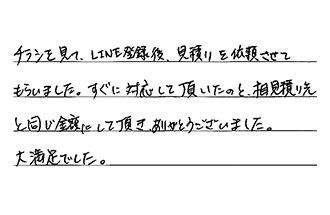 チラシを見て、LINE登録後、見積りを依頼させて
もらいました。すぐに対応して頂いたのと、相見積り先
と同じ金額にして頂き、ありがとうございました。
大満足でした。